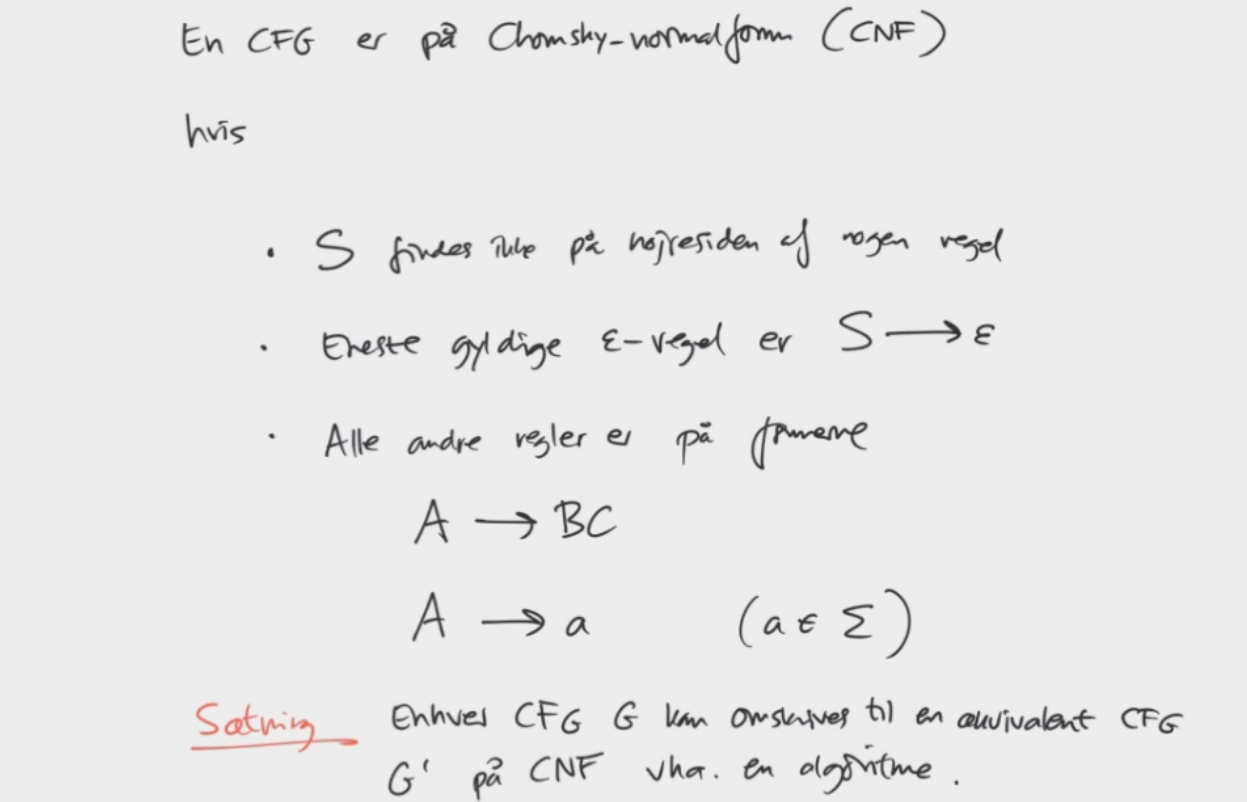 En CFG er på Chomsky-normalform (CNF)
hvis
• S findes ikke på højresiden af nogen regel
• Eneste gyldige ε-regel er S → ε
• Alle andre regler er på formerne
A → BC
A → a (a ∈ Σ)
Sætning Enhver CFG G kan omskrives til en ækvivalent CFG
G' på CNF vha. en algoritme.